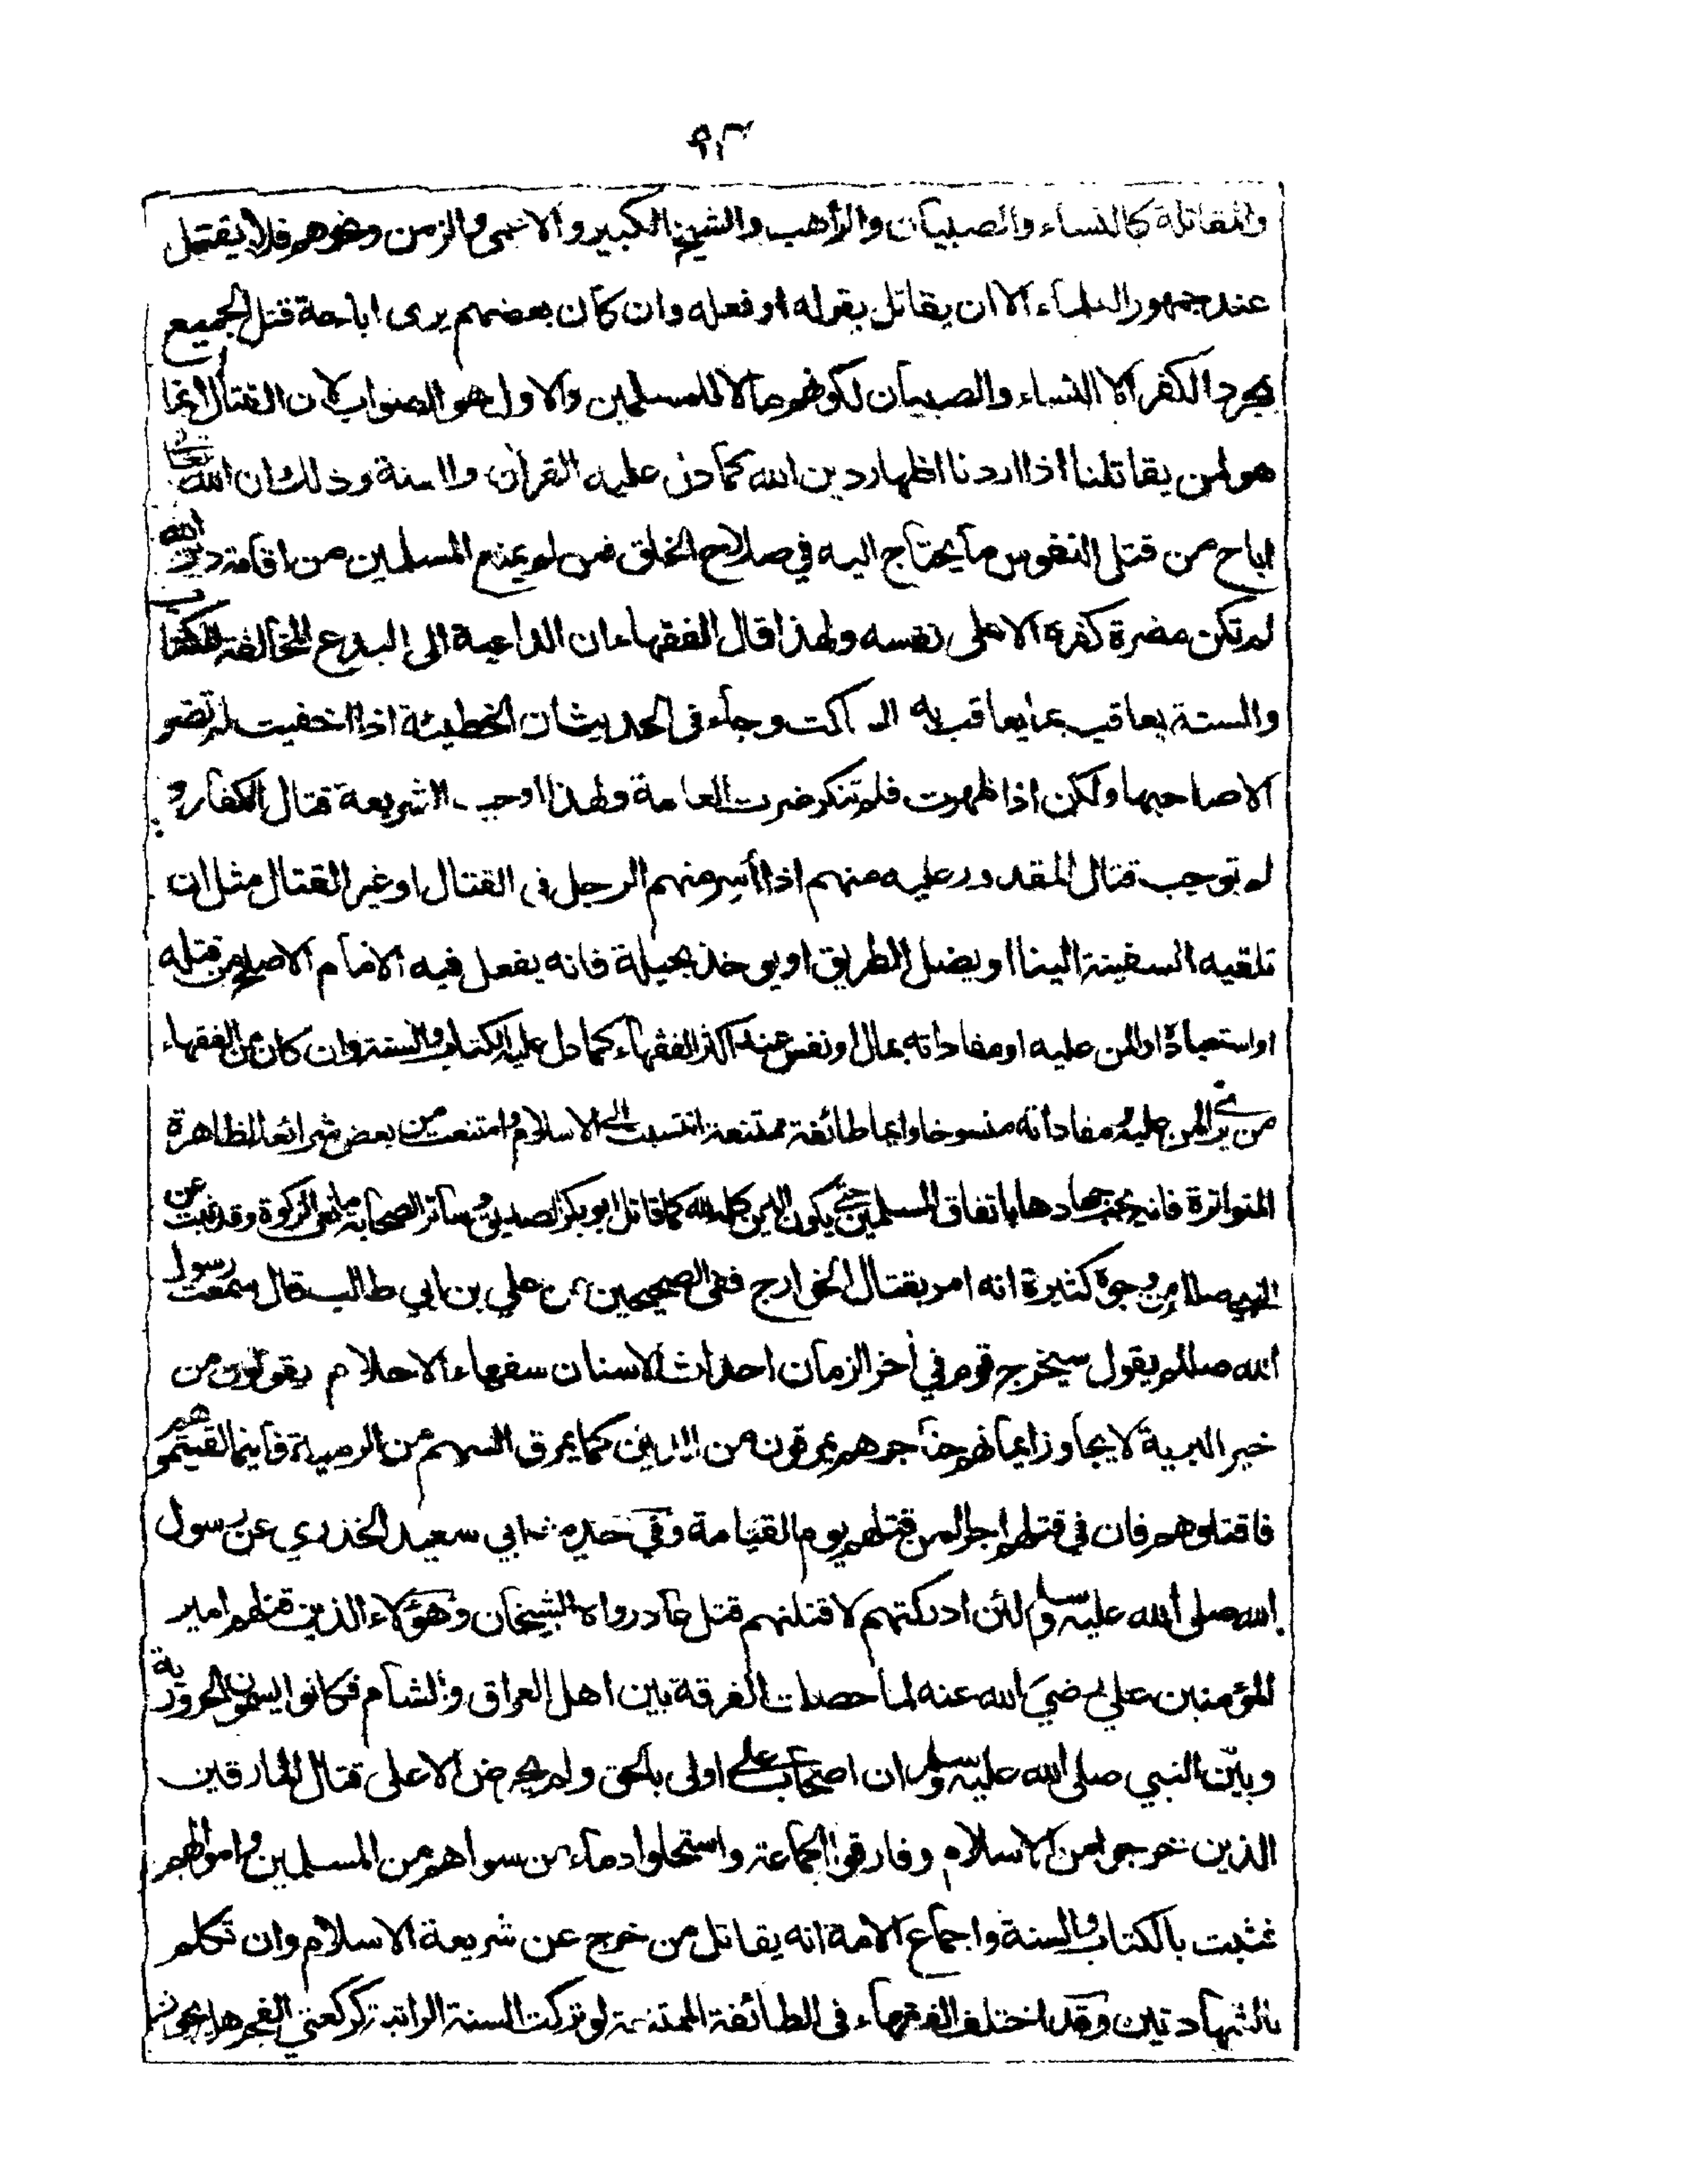 ٩٣
والمقاتلة كالنساء والصبيان والراهب والشيخ الكبير والاعمى والزمن ونحوهم فلا يقتل
عند جمهور العلماء الا ان يقاتل بقوله او فعله وان كان بعضهم يرى اباحة قتل الجميع
بمجرد الكفر الا النساء والصبيان لكونهم مالا للمسلمين والاول هو الصواب لان القتال انما
هو لمن يقاتلنا اذا اردنا اظهار دين الله كما دل عليه القرآن والسنة وذلك ان الله تعالى
اباح من قتل النفوس ما يحتاج اليه في صلاح الخلق فمن لم يمنع المسلمين من اقامة دين الله
لم تكن مضرة كفره الا على نفسه ولهذا قال الفقهاء ان الداعية الى البدع المخالفة للكتاب
والسنة يعاقب بما يعاقب به الساكت وجاء في الحديث ان الخطيئة اذا اخفيت لم تضر
الا صاحبها ولكن اذا ظهرت فلم تنكر ضرت العامة ولهذا اوجبت الشريعة قتال الكفار و
لم توجب قتال المقدور عليه منهم اذا أسر منهم الرجل فى القتال او غير القتال مثل ان
تلقيه السفينة الينا او يضل الطريق او يوخذ بحيلة فانه يفعل فيه الامام الاصلح من قتله
او استعباده او المن عليه او مفاداته بمال او نفس عند اكثر الفقهاء كما دل عليه الكتاب والسنة وان كان من الفقهاء
من يرى المن عليه ومفاداته منسوخا وايما طائفة ممتنعة انتسبت الى الاسلام وامتنعت من بعض شرائعه الظاهرة
المتواترة فانه يجب جهادها باتفاق المسلمين حتى يكون الدين كله لله كما قاتل ابو بكر الصديق وسائر الصحابة مانعى الزكوة وقد ثبت عن
النبي صللم من وجوه كثيرة انه امر بقتال الخوارج ففى الصحيحين عن علي بن ابي طالب قال سمعت رسول
الله صللم يقول سيخرج قوم في اخر الزمان احداث الاسنان سفهاء الاحلام يقولون من
خير البرية لا يجاوز ايمانهم حناجرهم يمرقون من الدين كما يمرق السهم من الرمية فاينما لقيتموهم
فاقتلوهم فان في قتلهم اجرا لمن قتلهم يوم القيامة وفي حديث ابي سعيد الخذري عن رسول
الله صلى الله عليه وسلم لئن ادركتهم لاقتلنهم قتل عاد رواه الشيخان وهؤلاء الذين قتلهم امير
المؤمنين علي رضي الله عنه لما حصلت الفرقة بين اهل العراق والشام فكانوا يسمون الحرورية
وبيّن النبي صلى الله عليه وسلم ان اصحاب علي اولى بالحق ولم يحرض الا على قتال المارقين
الذين خرجوا من الاسلام وفارقوا الجماعة واستحلوا دماء من سواهم من المسلمين واموالهم
فثبت بالكتاب والسنة واجماع الامة انه يقاتل من خرج عن شريعة الاسلام وان تكلم
بالشهادتين وقد اختلف الفقهاء فى الطائفة الممتنعة لو تركت السنة الراتبة كركعتي الفجر هل يجوز